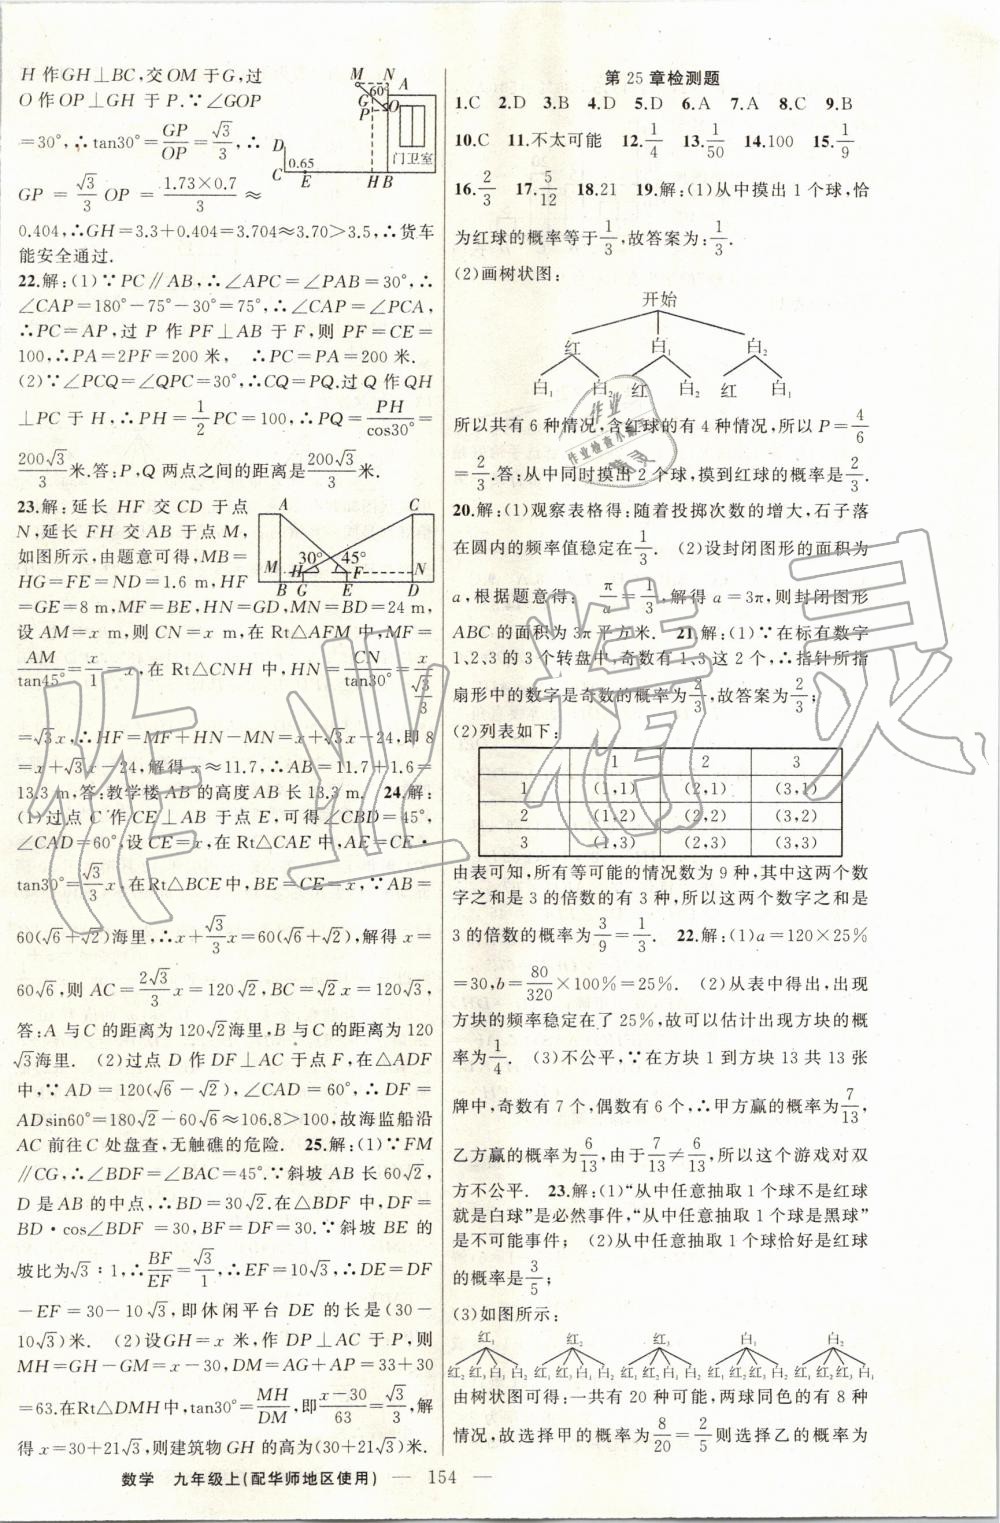 H作GH⊥BC,交OM于G,过
O作OP⊥GH于P.∵∠GOP
=30°,∴tan30°=GP/OP=√3/3,∴
GP=√3/3 OP=(1.73×0.7)/3≈
0.404,∴GH=3.3+0.404=3.704≈3.70>3.5,∴货车
能安全通过.
M N A
60°
G
P O
D
门卫室
0.65
C E H B
22.解:(1)∵PC∥AB,∴∠APC=∠PAB=30°,∴
∠CAP=180°-75°-30°=75°,∴∠CAP=∠PCA,
∴PC=AP,过P作PF⊥AB于F,则PF=CE=
100,∴PA=2PF=200米, ∴PC=PA=200米.
(2)∵∠PCQ=∠QPC=30°,∴CQ=PQ.过Q作QH
⊥PC于H,∴PH=1/2PC=100,∴PQ=PH/cos30°=
200√3/3米.答:P,Q两点之间的距离是200√3/3米.
23.解:延长HF交CD于点
N,延长FH交AB于点M,
如图所示,由题意可得,MB=
HG=FE=ND=1.6 m,HF
A C
30° 45°
M H F N
B G E D
=GE=8 m,MF=BE,HN=GD,MN=BD=24 m,
设AM=x m,则CN=x m,在Rt△AFM中,MF=
AM/tan45°=x/1=x,在Rt△CNH中,HN=CN/tan30°=x/(√3/3)
=√3x,∴HF=MF+HN-MN=x+√3x-24,即8
=x+√3x-24,解得x≈11.7,∴AB=11.7+1.6=
13.3 m.答:教学楼AB的高度AB长13.3 m. 24.解:
(1)过点C作CE⊥AB于点E,可得∠CBD=45°,
∠CAD=60°,设CE=x,在Rt△CAE中,AE=CE·
tan30°=√3/3x,在Rt△BCE中,BE=CE=x,∵AB=
60(√6+√2)海里,∴x+√3/3x=60(√6+√2),解得x=
60√6,则AC=2√3/3x=120√2,BC=√2x=120√3,
答:A与C的距离为120√2海里,B与C的距离为120
√3海里. (2)过点D作DF⊥AC于点F,在△ADF
中,∵AD=120(√6-√2),∠CAD=60°,∴DF=
ADsin60°=180√2-60√6≈106.8>100,故海监船沿
AC前往C处盘查,无触礁的危险. 25.解:(1)∵FM
∥CG,∴∠BDF=∠BAC=45°.∵斜坡AB长60√2,
D是AB的中点,∴BD=30√2.在△BDF中,DF=
BD·cos∠BDF=30,BF=DF=30.∵斜坡BE的
坡比为√3∶1,∴BF/EF=√3/1,∴EF=10√3,∴DE=DF
-EF=30-10√3,即休闲平台DE的长是(30-
10√3)米. (2)设GH=x米,作DP⊥AC于P,则
MH=GH-GM=x-30,DM=AG+AP=33+30
=63.在Rt△DMH中,tan30°=MH/DM,即(x-30)/63=√3/3,解
得x=30+21√3,则建筑物GH的高为(30+21√3)米.
第25章检测题
1.C 2.D 3.B 4.D 5.D 6.A 7.A 8.C 9.B
10.C 11.不太可能 12.1/4 13.1/50 14.100 15.1/9
16.2/3 17.5/12 18.21 19.解:(1)从中摸出1个球,恰
为红球的概率等于1/3,故答案为:1/3.
(2)画树状图:
开始
红 白₁ 白₂
白₁ 白₂ 红 白₂ 红 白₁
所以共有6种情况,含红球的有4种情况,所以P=4/6
=2/3.答:从中同时摸出2个球,摸到红球的概率是2/3.
20.解:(1)观察表格得:随着投掷次数的增大,石子落
在圆内的频率值稳定在1/3. (2)设封闭图形的面积为
a,根据题意得: π/a=1/3,解得a=3π,则封闭图形
ABC的面积为3π平方米. 21.解:(1)∵在标有数字
1、2、3的3个转盘中,奇数有1、3这2个,∴指针所指
扇形中的数字是奇数的概率为2/3,故答案为:2/3;
(2)列表如下:
1 2 3
1 (1,1) (2,1) (3,1)
2 (1,2) (2,2) (3,2)
3 (1,3) (2,3) (3,3)
由表可知,所有等可能的情况数为9种,其中这两个数
字之和是3的倍数的有3种,所以这两个数字之和是
3的倍数的概率为3/9=1/3. 22.解:(1)a=120×25%
=30,b=80/320×100%=25%. (2)从表中得出,出现
方块的频率稳定在了25%,故可以估计出现方块的概
率为1/4. (3)不公平,∵在方块1到方块13共13张
牌中,奇数有7个,偶数有6个,∴甲方赢的概率为7/13,
乙方赢的概率为6/13,由于7/13≠6/13,所以这个游戏对双
方不公平. 23.解:(1)“从中任意抽取1个球不是红球
就是白球”是必然事件,“从中任意抽取1个球是黑球”
是不可能事件; (2)从中任意抽取1个球恰好是红球
的概率是3/5;
(3)如图所示:
红₁ 红₂ 红₃ 白₁ 白₂
由树状图可得:一共有20种可能,两球同色的有8种
情况,故选择甲的概率为8/20=2/5则选择乙的概率为
数学 九年级上(配华师地区使用) — 154 —
作业精灵